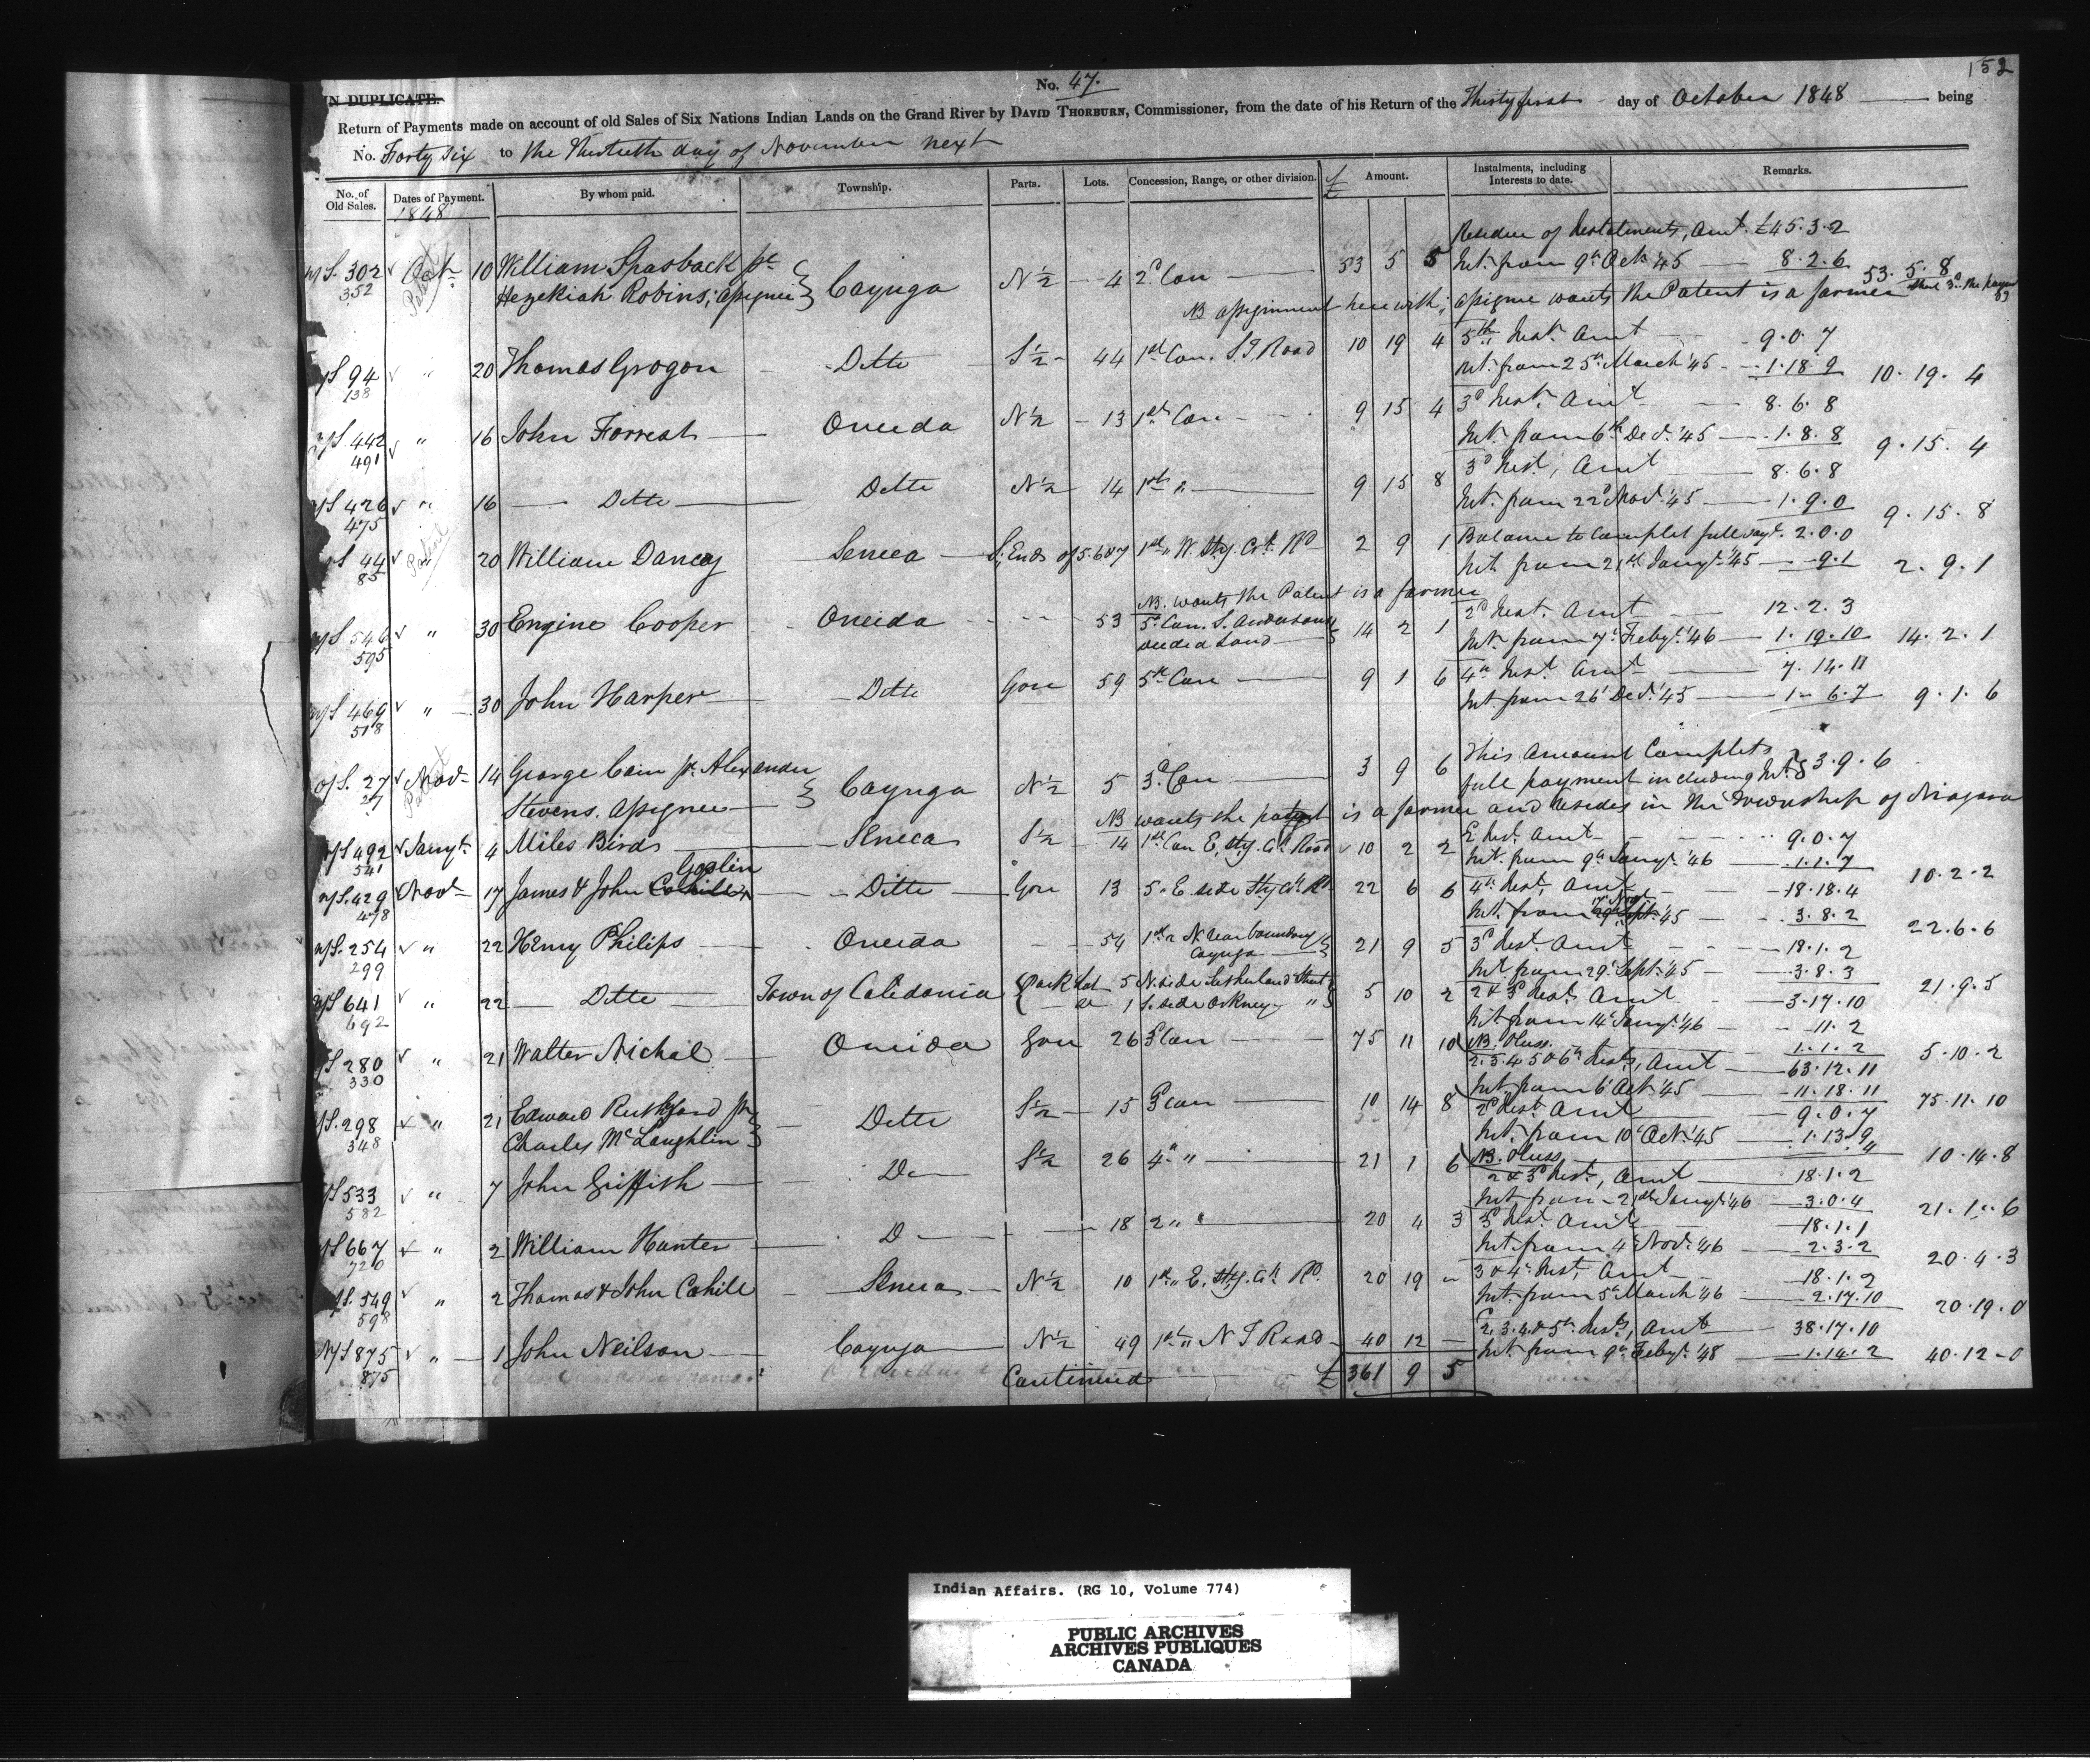 152
No. 47.
IN DUPLICATE.
Return of Payments made on account of old Sales of Six Nations Indian Lands on the Grand River by DAVID THORBURN, Commissioner, from the date of his Return of the Thirty first day of October 1848 being
No. Forty Six to the Thirtieth day of November next
No. of Old Sales. Dates of Payment. By whom paid. Township. Parts. Lots. Concession, Range, or other division. £ Amount. Instalments, including Interests to date. Remarks.
1848
Residue of Instalments, Amt. £45.3.2
302 Oct 10 William Spasback pr Cayuga N½ 4 2d Con 53 5 5 Int. from 9th Oct '45 8.2.6 53.5.8
352 Patent Hezekiah Robins, assignee
NB assignment herewith; assignee wants the Patent is a farmer
S 94 " 20 Thomas Grogon Ditto S½ 44 1st Con. S.T. Road 10 19 4 5th Inst. Amt 9.0.7
138 Int. from 25th March '45 1.18.9 10.19.4
S. 442 " 16 John Forrest Oneida N½ 13 1st Con 9 15 4 3d Inst. Amt 8.6.8
491 Int. from 6th Dec. '45 1.8.8 9.15.4
S 426 " 16 Ditto Ditto N½ 14 1st " 9 15 8 3d Inst, Amt 8.6.8
475 Int. from 22d Nov. '45 1.9.0 9.15.8
S 44 20 William Dancey Seneca S. Ends of 5.6&7 1st " W. Sty. Cr. Rd 2 9 1 Balance to Complet full payt. 2.0.0
85 Patent Int. from 21st Jany. '45 9.1 2.9.1
NB. wants the Patent is a farmer
S 546 " 30 Engine Cooper Oneida 53 5th Con. S. Andersons deeded Land 14 2 1 2d Inst. Amt 12.2.3
595 Int. from 7th Feby. '46 1.19.10 14.2.1
S 469 " 30 John Harper Ditto Gore 59 5th Con 9 1 6 4th Inst. Amt 7.14.11
518 Int. from 26 Dec. '45 1.6.7 9.1.6
O/S. 27 Nov 14 George Cain pr. Alexander Cayuga N½ 5 3d Con 3 9 6 This Amount Complets
27 Patent Stevens. assignee full payment including Int. 3.9.6
NB wants the patent is a farmer and resides in the Township of Niagara
S 492 Jany. 4 Miles Birds Seneca S½ 14 1st Con E. Sty. Cr. Road 10 2 2 Inst. Amt 9.0.7
541 Int. from 9th Jany. '46 1.1.7 10.2.2
Goslin
S. 429 Nov 17 James & John Cahill Ditto Gore 13 5 " E. side Sty. Cr. Rd 22 6 6 4th Inst. Amt 18.18.4
478 Int. from 29th Sept. '45 3.8.2 22.6.6
S. 254 " 22 Henry Philips Oneida 54 1st " N. Near boundary Cayuga 21 9 5 3d Inst. Amt 18.1.2
299 Int. from 29th Sept. '45 3.8.3 21.9.5
S 641 " 22 Ditto Town of Calidonia Park Lot 5 N. side Sutherland Street 5 10 2 2 & 3d Inst. Amt 3.17.10
692 do 1 S. side Orkney " Int. from 14 Jany. '46 11.2
NB. Pluss. 1.1.2 5.10.2
S 280 " 21 Walter Nichol Oneida Gore 26 3d Con 75 11 10 2.3.4.5 & 6th Insts, Amt 63.12.11
330 Int. from 6th Oct. '45 11.18.11 75.11.10
S. 298 " 21 Edward Ruthford pr Ditto S½ 15 3d Con 10 14 8 2d Inst. Amt 9.0.7
348 Charles McLaughlin Int. from 10th Oct. '45 1.13.9
NB. Pluss, 10.14.8
S 533 " 7 John Griffith Do S½ 26 4th " 21 1 6 2 & 3d Inst, Amt 18.1.2
582 Int. from 21st Jany. '46 3.0.4 21.1.6
S 667 " 2 William Hunter Do 18 2 " " 20 4 3 3d Inst. Amt 18.1.1
720 Int. from 4th Nov. '46 2.3.2 20.4.3
S. 549 " 2 Thomas & John Cahill Seneca N½ 10 1st " E. Sty. Cr. Rd. 20 19 " 3 & 4th Inst, Amt 18.1.2
598 Int. from 5th March '46 2.17.10 20.19.0
N/S 875 " 1 John Neilson Cayuga N½ 49 1st " N T Road 40 12 2.3.4. & 5th Insts, Amt 38.17.10
875 Int. from 9th Feby. '48 1.14.2 40.12.0
Continued £361 9 5
Indian Affairs. (RG 10, Volume 774)
PUBLIC ARCHIVES
ARCHIVES PUBLIQUES
CANADA